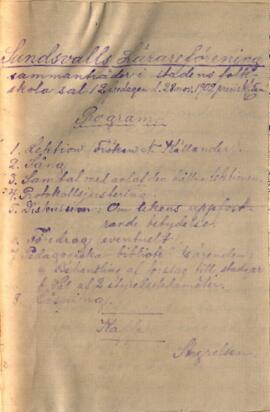 Sundsvalls Lärareförening
sammanträder i stadens folk-
skola sal 1 fredagen d. 28 nov. 1902
Program
1. Lektion Fröken N. Hållander.
2. Sång
3. Samtal med anledn. hållna lektionen
4. Protokollsjustering
5. Diskussion: Om lekens uppfost-
rande betydelse.
6. Föredrag eventuelt
7. Pedagogiska bibliotekets ärenden:
a Behandling af förslag till stadgar
b Val af 2 styrelseledamöter.
8. Läsning.
Kaffe
Styrelsen.